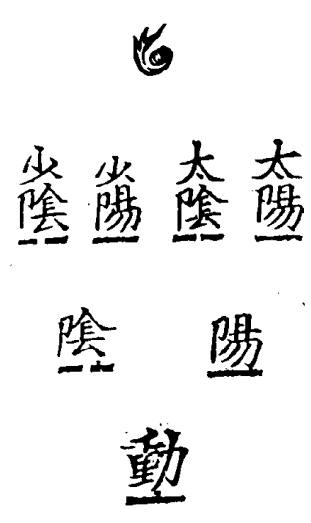 太陽
太陰
少陽
少陰
陽
陰
動